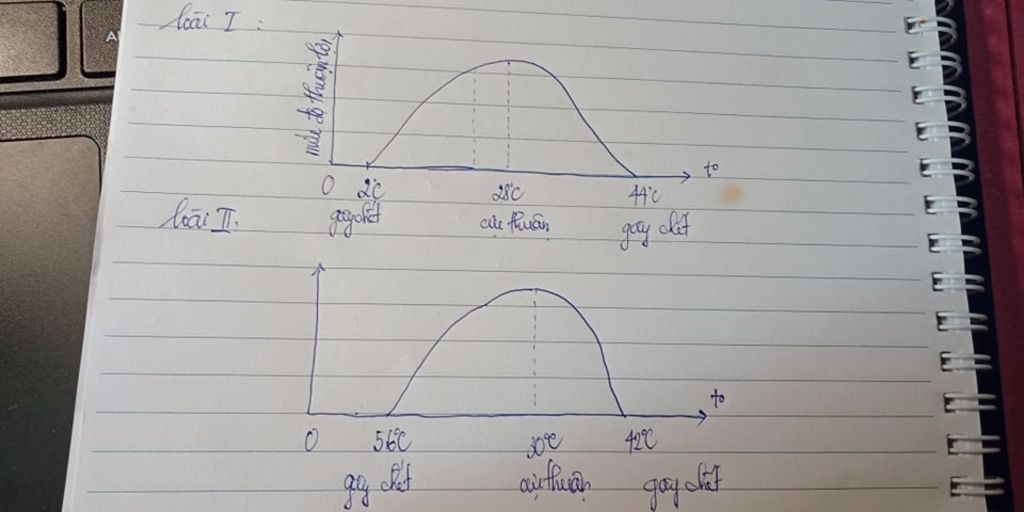 loài I :
mức độ thuận lợi
t°
0 2°C 28°C 44°C
gây chết cực thuận gây chết
loài II.
t°
0 5,6°C 30°C 42°C
gây chết cực thuận gây chết